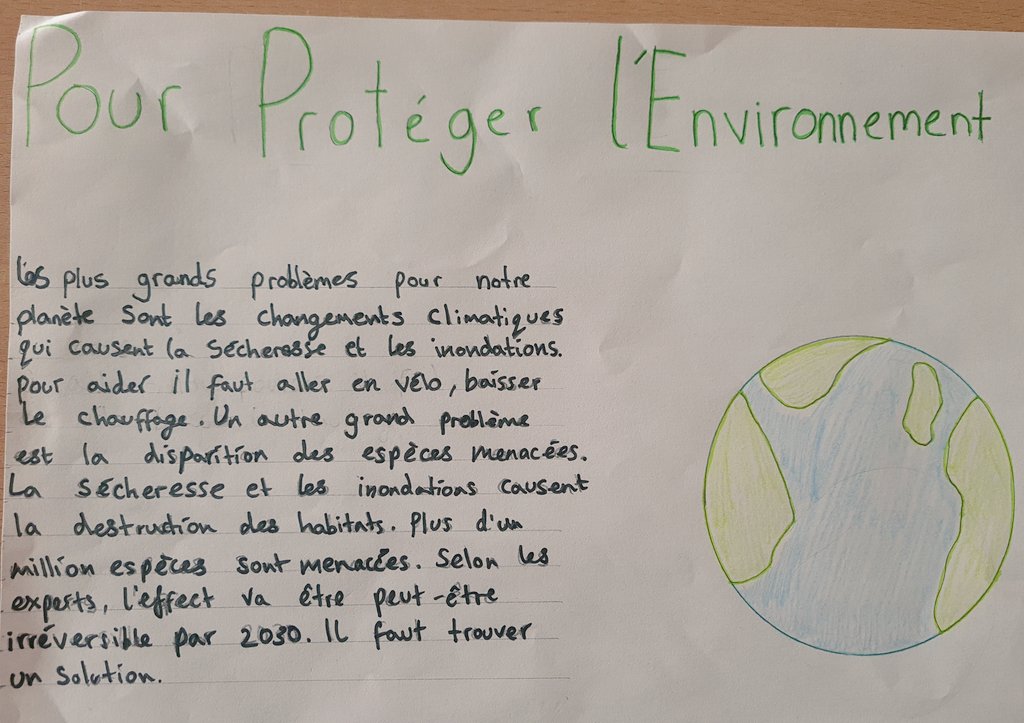 Pour Protéger l'Environnement
Les plus grands problèmes pour notre
planète sont les changements climatiques
qui causent la sécheresse et les inondations.
pour aider il faut aller en vélo, baisser
le chauffage. Un autre grand problème
est la disparition des espèces menacées.
La sécheresse et les inondations causent
la destruction des habitats. Plus d'un
million espèces sont menacées. Selon les
experts, l'effect va être peut-être
irréversible par 2030. Il faut trouver
un solution.